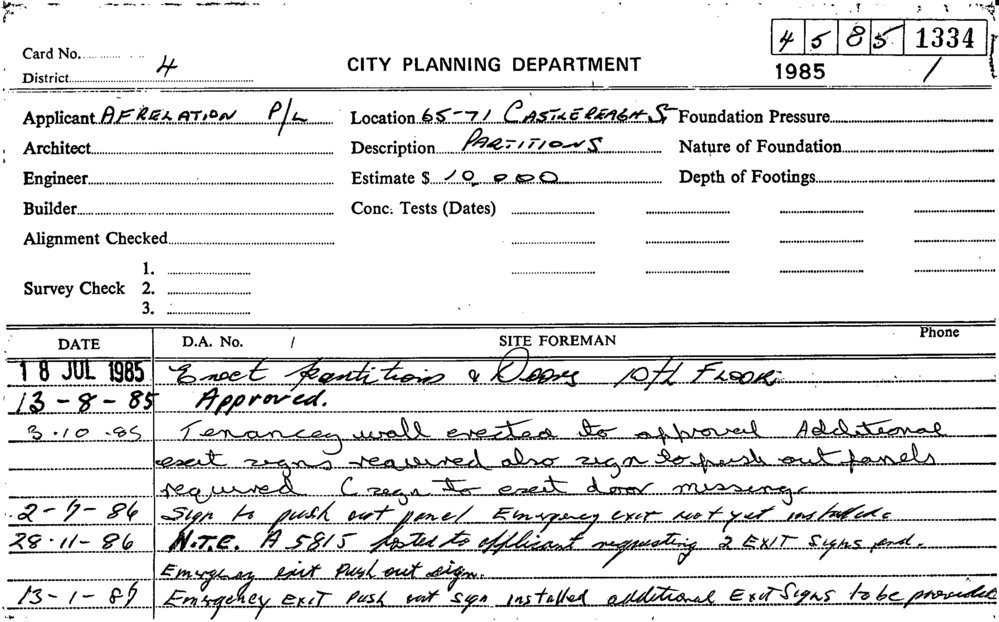 45 85 1334
Card No.
District 4
CITY PLANNING DEPARTMENT
1985 /
Applicant AFRELATION P/L
Location 65-71 CASTLEREAGH S
Foundation Pressure
Architect
Description PARTITIONS
Nature of Foundation
Engineer
Estimate $ 10,000
Depth of Footings
Builder
Conc. Tests (Dates)
Alignment Checked
Survey Check
1.
2.
3.
DATE
D.A. No. /
SITE FOREMAN
Phone
18 JUL 1985 Erect partitions & Doors 10th FLOOR.
13-8-85 Approved.
3.10.85 Tenancey wall erected to approval Additional
exit signs required also sign to push out panels
required (sign to exit door missing.
2-7-86 Sign to push out panel Emergency exit not yet installed.
28-11-86 N.T.E. A 5815 posted to applicant requesting 2 EXIT Signs and.
Emergency exit Push out sign.
13-1-87 Emergency EXIT Push out sign installed additional Exit Signs to be provided